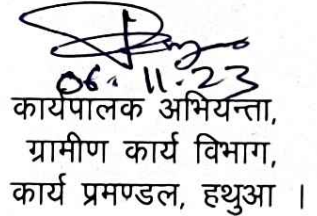 06.11.23
कार्यपालक अभियन्ता,
ग्रामीण कार्य विभाग,
कार्य प्रमण्डल, हथुआ ।